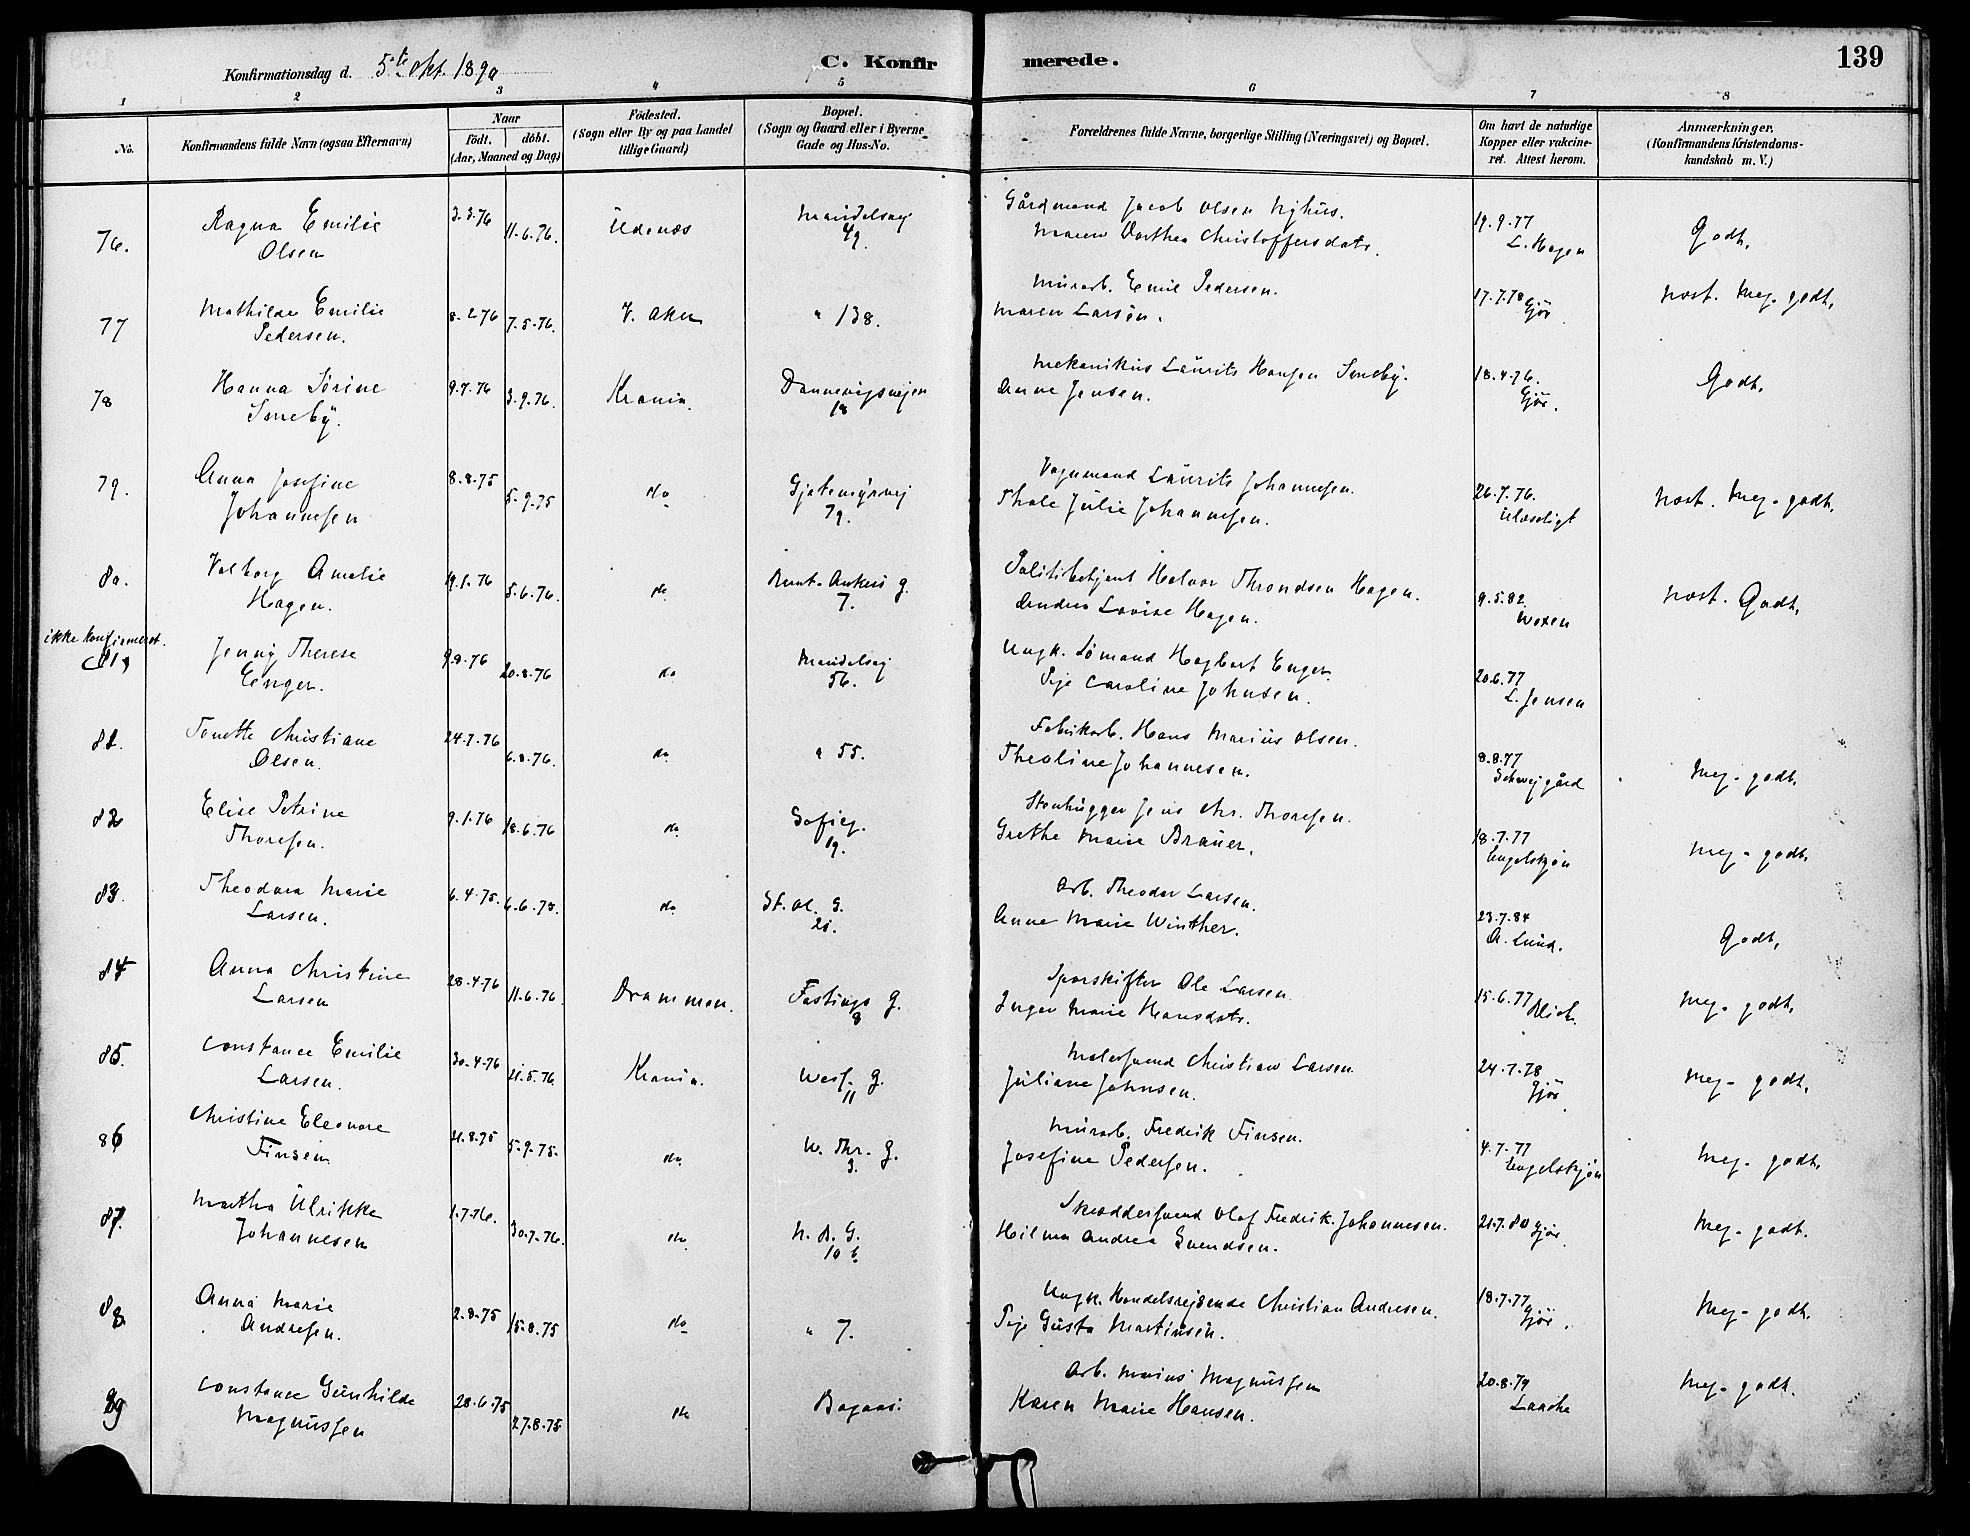 139
Konfirmationsdag d. 5te Okt. 1890
C. Konfirmerede.
1 2 3 4 5 6 7 8
No.
Konfirmandens fulde Navn (ogsaa Efternavn)
Naar
födt. döbt.
(Aar, Maaned og Dag)
Födested.
(Sogn eller By og paa Landet
tillige Gaard)
Bopæl.
(Sogn og Gaard eller i Byerne
Gade og Hus-No.
Forældrenes fulde Navne, borgerlige Stilling (Næringsvei) og Bopæl.
Om havt de naturlige
Kopper eller vakcine-
ret. Attest herom.
Anmærkninger.
(Konfirmandens Kristendoms-
kundskab m. V.)
76. Ragna Emilie Olsen 3.3.76 11.6.76. Udenæs 49. Gårdmand Jacob Olsen Nyhus. Maren Dorthea Christoffersdatr. 19.9.77 L. Hagen Godt.
77 Mathilde Emilie Pedersen. 8.2.76 7.5.76. V. Aker " 138. Murarb. Emil Pedersen. Maren Larsen. 17.7.78 Gjör Næst. Meg. godt.
78 Hanna Sörine Smeby. 9.7.76 3.9.76. Krania. Dannevigsvejen 18 Mekanikus Laurits Hansen Smeby. Anne Jensen. 18.4.76. Gjör. Godt.
79. Anna Josefine Johannesen 8.8.75 5.9.75 do 79. Vognmand Laurits Johannesen. Thale Julie Johannesen. 26.7.76. Ulæseligt Næst. Meg. godt.
80. Valborg Amalie Hagen. 19.1.76 5.6.76. do Bernt Ankers g. 7. Politibetjent Halvor Throndsen Hagen. Andrea Lovise Hagen. 9.5.82 Woxen Næst. Godt.
ikke konfirmeret.
81 Jenny Therese Enger. 9.8.76 20.8.76 do 56. Ungk. Sömand Hagbart Enger. Pige Caroline Johnsen. 20.6.77 L. Jensen
81. Tonette Christiane Olsen. 24.7.76 6.8.76. do " 55. Fabrikarb. Hans Marius Olsen. Theoline Johannesen. 8.8.77 Schwejgård Meg. godt.
82 Elise Petrine Thoresen. 9.1.76 18.6.76 do. Sofieg. 19. Stenhugger Jens Chr. Thoresen. Grethe Marie Brauer. 18.7.77 Engelskjön Meg. godt.
83. Theodora Marie Larsen. 6.4.75. 6.6.75. do St. Ol. G. 21. Arb. Theodor Larsen. Anne Marie Winther. 23.7.84 A. Lund. Godt.
84 Anna Christine Larsen 28.4.76 11.6.76. Drammen. Fastings g. 8 Sporskifter Ole Larsen. Inger Marie Hansdatr. 15.6.77 Meg. godt.
85. Constance Emilie Larsen. 30.4.76 21.5.76. Krania. Wess. g. 11 Malersvend Christian Larsen. Juliane Johnsen. 24.7.78 Gjör Meg. godt.
86 Christine Eleonore Finsen. 21.8.75 5.9.75. do. W. Thr. g. 3. Murarb. Fredrik Finsen. Josefine Pedersen. 4.7.77 Engelskjön Meg. godt.
87. Martha Ulrikke Johannesen 1.7.76. 30.7.76. do. N. B. G. 10 b. Skræddersvend Olaf Fredrik Johannesen. Hilma Andrea Svendsen. 21.7.80 Gjör Meg. godt.
88 Anna Marie Andresen. 2.8.75 15.8.75 do " 7. Ungk. Handelsrejsende Christian Andresen. Pige Gusta Martinsen. 18.7.77. Gjör. Meg. godt.
89 Constance Gunhilde Magnussen 28.6.75 27.8.75 do Bogaas. Arb. Marius Magnussen Karen Marie Hansen. 20.8.79 Laache Meg. godt.